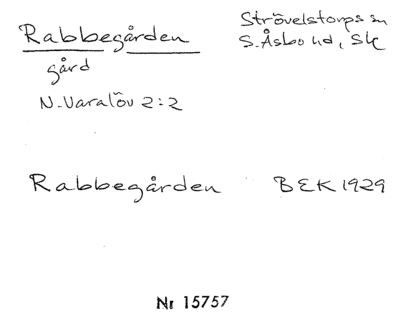 Rabbegården
Strövelstorps sn
S. Åsbo hd, Sk
gård
N. Varalöv 2:2
Rabbegården BEK 1929
Nr 15757